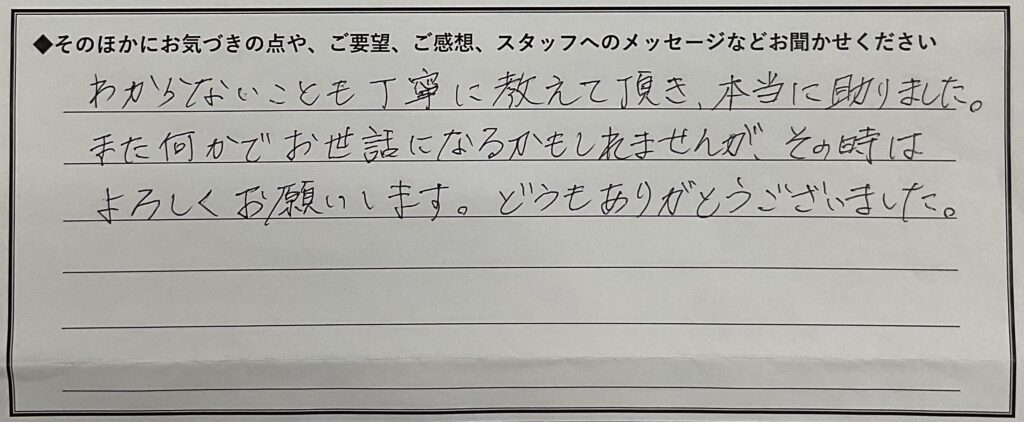 ◆そのほかにお気づきの点や、ご要望、ご感想、スタッフへのメッセージなどお聞かせください
わからないことも丁寧に教えて頂き、本当に助りました。
また何かでお世話になるかもしれませんが、その時は
よろしくお願いします。どうもありがとうございました。